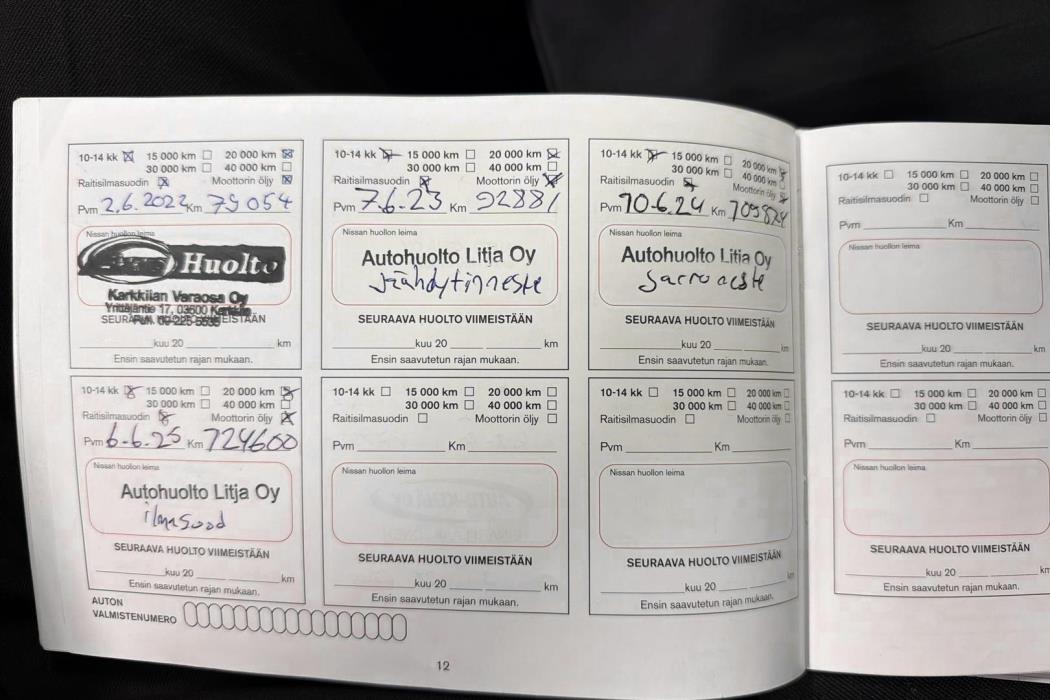 10-14 kk ☒ 15 000 km ☐ 20 000 km ☒
30 000 km ☐ 40 000 km ☐
Raitisilmasuodin ☒ Moottorin öljy ☒
Pvm 2.6.2022 Km 79 054
Nissan huollon leima
Huolto
Karkkilan Varaosa Oy
Yrittäjäntie 17, 03600
SEURAAVA HUOLTO VIIMEISTÄÄN
kuu 20 km
Ensin saavutetun rajan mukaan.
10-14 kk ☒ 15 000 km ☐ 20 000 km ☒
30 000 km ☐ 40 000 km ☐
Raitisilmasuodin ☒ Moottorin öljy ☒
Pvm 7.6.23 Km 92881
Nissan huollon leima
Autohuolto Litja Oy
Jäähdytinneste
SEURAAVA HUOLTO VIIMEISTÄÄN
kuu 20 km
Ensin saavutetun rajan mukaan.
10-14 kk ☒ 15 000 km ☐ 20 000 km ☒
30 000 km ☐ 40 000 km ☐
Raitisilmasuodin ☒ Moottorin öljy ☒
Pvm 10.6.24 Km 109824
Nissan huollon leima
Autohuolto Litja Oy
SEURAAVA HUOLTO VIIMEISTÄÄN
kuu 20 km
Ensin saavutetun rajan mukaan.
10-14 kk ☐ 15 000 km ☐ 20 000 km ☐
30 000 km ☐ 40 000 km ☐
Raitisilmasuodin ☐ Moottorin öljy ☐
Pvm Km
Nissan huollon leima
SEURAAVA HUOLTO VIIMEISTÄÄN
kuu 20 km
Ensin saavutetun rajan mukaan.
10-14 kk ☒ 15 000 km ☐ 20 000 km ☒
30 000 km ☐ 40 000 km ☐
Raitisilmasuodin ☒ Moottorin öljy ☒
Pvm 6.6.25 Km 124600
Nissan huollon leima
Autohuolto Litja Oy
ilmasuod
SEURAAVA HUOLTO VIIMEISTÄÄN
kuu 20 km
Ensin saavutetun rajan mukaan.
10-14 kk ☐ 15 000 km ☐ 20 000 km ☐
30 000 km ☐ 40 000 km ☐
Raitisilmasuodin ☐ Moottorin öljy ☐
Pvm Km
Nissan huollon leima
SEURAAVA HUOLTO VIIMEISTÄÄN
kuu 20 km
Ensin saavutetun rajan mukaan.
10-14 kk ☐ 15 000 km ☐ 20 000 km ☐
30 000 km ☐ 40 000 km ☐
Raitisilmasuodin ☐ Moottorin öljy ☐
Pvm Km
Nissan huollon leima
SEURAAVA HUOLTO VIIMEISTÄÄN
kuu 20 km
Ensin saavutetun rajan mukaan.
10-14 kk ☐ 15 000 km ☐ 20 000 km ☐
30 000 km ☐ 40 000 km ☐
Raitisilmasuodin ☐ Moottorin öljy ☐
Pvm Km
Nissan huollon leima
SEURAAVA HUOLTO VIIMEISTÄÄN
kuu 20 km
Ensin saavutetun rajan mukaan.
AUTON
VALMISTENUMERO
12